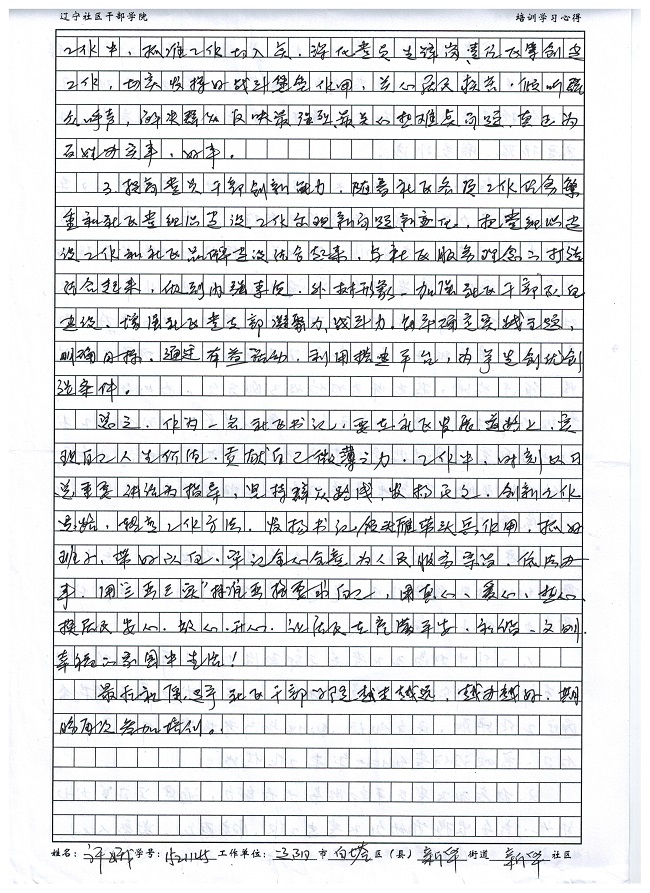 辽宁社区干部学院 培训学习心得
工作中，抓准工作切入点，深化党员生诺岗责及改革创建
工作，切实发挥好战斗堡垒作用，关心居民疾苦，倾听群
众呼声，解决群众反映最强烈最关心热难点问题，真正为
百姓办实事、好事。
3.提高党员干部创新能力，随着社区各项工作任务繁
重和社区党组织建设工作出现新问题新变化，把党组织建
设工作和社区品牌建设结合起来，与社区服务理念工作结
合起来，做到内强素质，外树形象，加强社区干部队伍
建设，增强社区党支部凝聚力，战斗力，
明确目标，通过有益活动，利用搭建平台，为创
造条件。
总之，作为一名社区书记，要在社区发展道路上，实
现自己人生价值，贡献自己微薄之力。工作中，时刻以习
总重要讲话为指导，坚持群众路线，发扬民主，创新工作
思路，规范工作方法，发挥书记领头雁带头兵作用，抓好
班子，带好队伍，牢记全心全意为人民服务宗旨，依法办
事，用“三严三实”标准严格要求自己，用真心、爱心、热心
换居民安心、放心、开心，让居民在和谐、文明
幸福的家园中生活！
最后祝愿辽宁社区干部学院越走越远，越办越好，期
盼再次参加培训。
姓名： 学号：1521145 工作单位：辽阳 市 白塔 区（县） 新华 街道 新华 社区